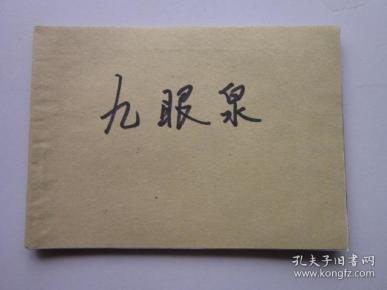 九眼泉
孔夫子旧书网
www.kongfz.com